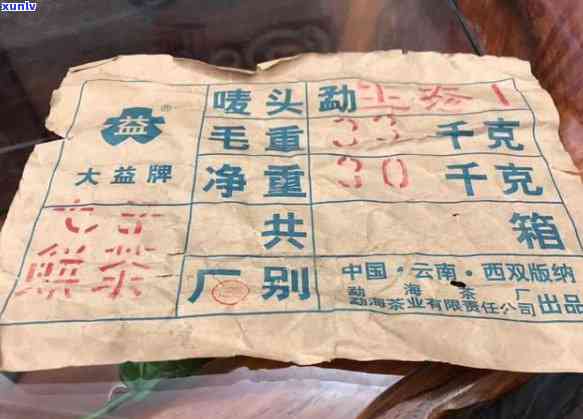 xunlv
益®
大益牌
七子
餅茶
唛头 勐
毛重 33 千克
净重 30 千克
共 箱
厂别
中国·云南·西双版纳
勐海茶厂
勐海茶业有限责任公司 出品